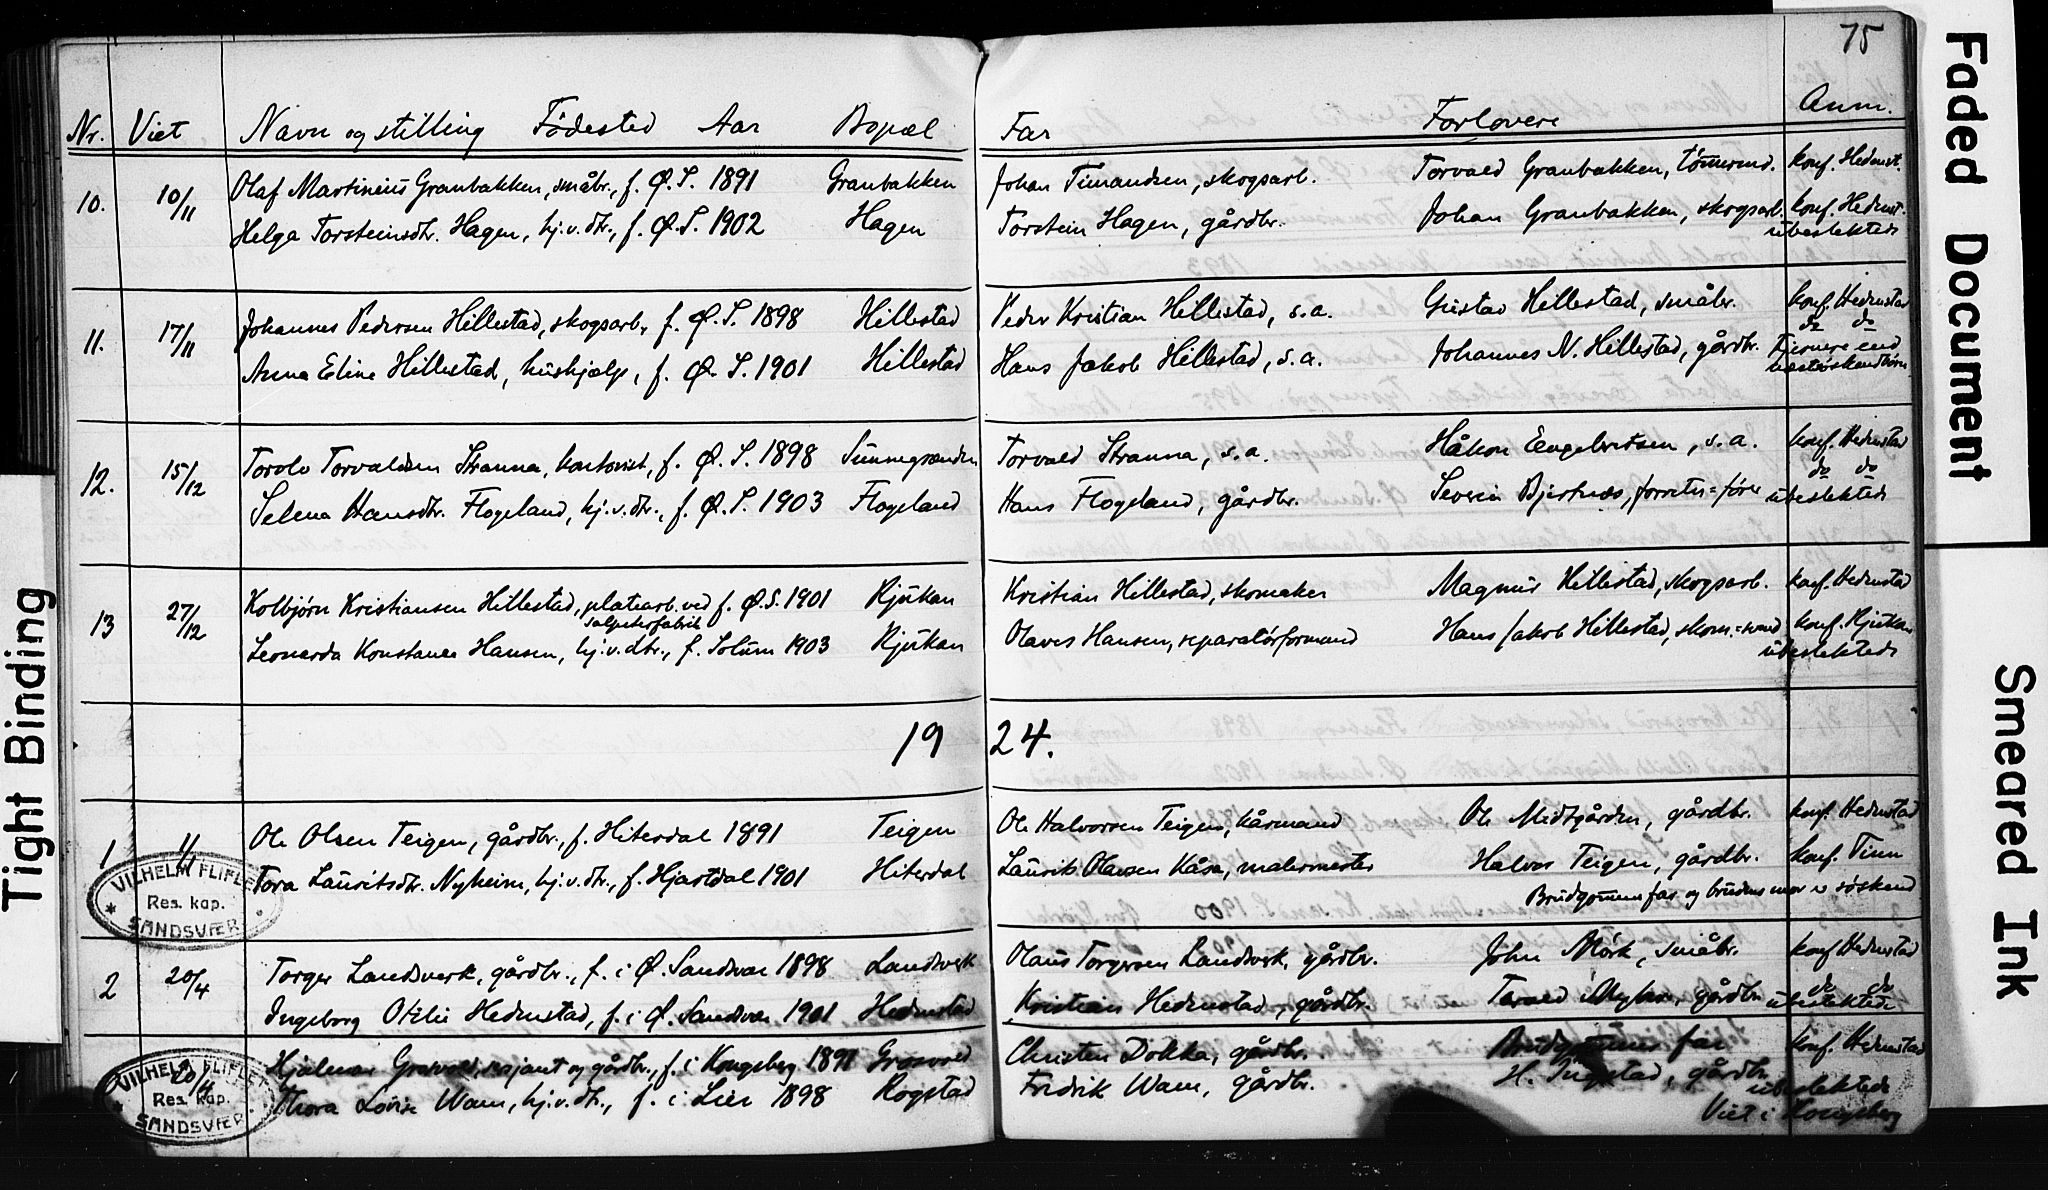 75
Nr. Viet Navn og stilling Födested Aar Bopæl Far Forlovere Anm.
10. 10/11 Olaf Martinius Granbakken, småbr., f. Ø. S. 1891 Granbakken Johan Timandsen, skogsarb. Torvald Granbakken, tömmermd. konf. Hedenst.
Helga Torsteinsdtr. Hagen, hj.v. dtr., f. Ø. S. 1902 Hagen Torstein Hagen, gårdbr. Johan Granbakken, skogsarb. konf. Hedenst.
ubeslektede
11. 17/11 Johannes Pedersen Hillestad, skogsarb., f. Ø. S. 1898 Hillestad Peder Kristian Hillestad, s.a. Gustav Hillestad, småbr. konf. Hedenstad
do do
Anna Eline Hillestad, hushjælp, f. Ø. S. 1901 Hillestad Hans Jakob Hillestad, s.a. Johannes N. Hillestad, gårdbr. Fjernere end
næstesøskendbörn
12. 15/12 Torolv Torvaldsen Stranna, kontorist, f. Ø. S. 1898 Torvald Stranna, s.a. Håkon Engebretsen, s.a. konf. Hedenstad
do do
Selena Hansdtr. Flogeland, hj.v. dtr., f. Ø. S. 1903 Flogeland Hans Flogeland, gårdbr. Severin Bjertnæs, forretn.=fører ubeslektede
13 27/12 Kolbjørn Kristiansen Hillestad, platearb. ved f. Ø. S. 1901 Rjukan Kristian Hillestad, skomaker Magnus Hillestad, skogsarb. konf. Hedenstad
salpeterfabrik
Leonarda Konstance Hansen, hj.v. dtr., f. Solum 1903 Rjukan Olaves Hansen, reparatörformand Hans Jakob Hillestad, skom. konf. Rjukan
ubeslektede
19 24.
1 1/1 Ole Olsen Teigen, gårdbr., f. Hiterdal 1891 Teigen Ole Halvorsen Teigen, kårmand Ole Midtgården, gårdbr. konf. Hedenstad
Tora Lauritsdtr. Nyheim, hj.v. dtr., f. Hjartdal 1901 Hiterdal Laurits Olavsen Kåsa, malermester Halvor Teigen, gårdbr. konf. Tinn
Brudgommens far og brudens mor er søskend
VILHELM FLIFLET
Res. kap.
SANDSVÆR
2 20/4 Torger Landsverk, gårdbr., f. i Ø. Sandsvær 1898 Landsverk Olaus Torgersen Landsverk, gårdbr. John Mörk, småbr. konf Hedenstad
do do
Ingeborg Otelie Hedenstad, f. i Ø. Sandsvær 1901 Hedenstad Kristian Hedenstad, gårdbr. gårdbr ubeslektede
20/4 Hjalmar Grosvold, serjant og gårdbr., f. i Kongsberg 1891 Grosvold Christen Dokka, gårdbr. Brudgommens far konf. Hedenstad
Thora Lovise Wam, hj.v. dtr., f. i Lier 1898 Rogstad Fredrik Wam, gårdbr. H. Ingstad, gårdbr ubeslektede
Viet i Kongsberg
VILHELM FLIFLET
Res. kap.
SANDSVÆR
Tight Binding
Faded Document
Smeared Ink